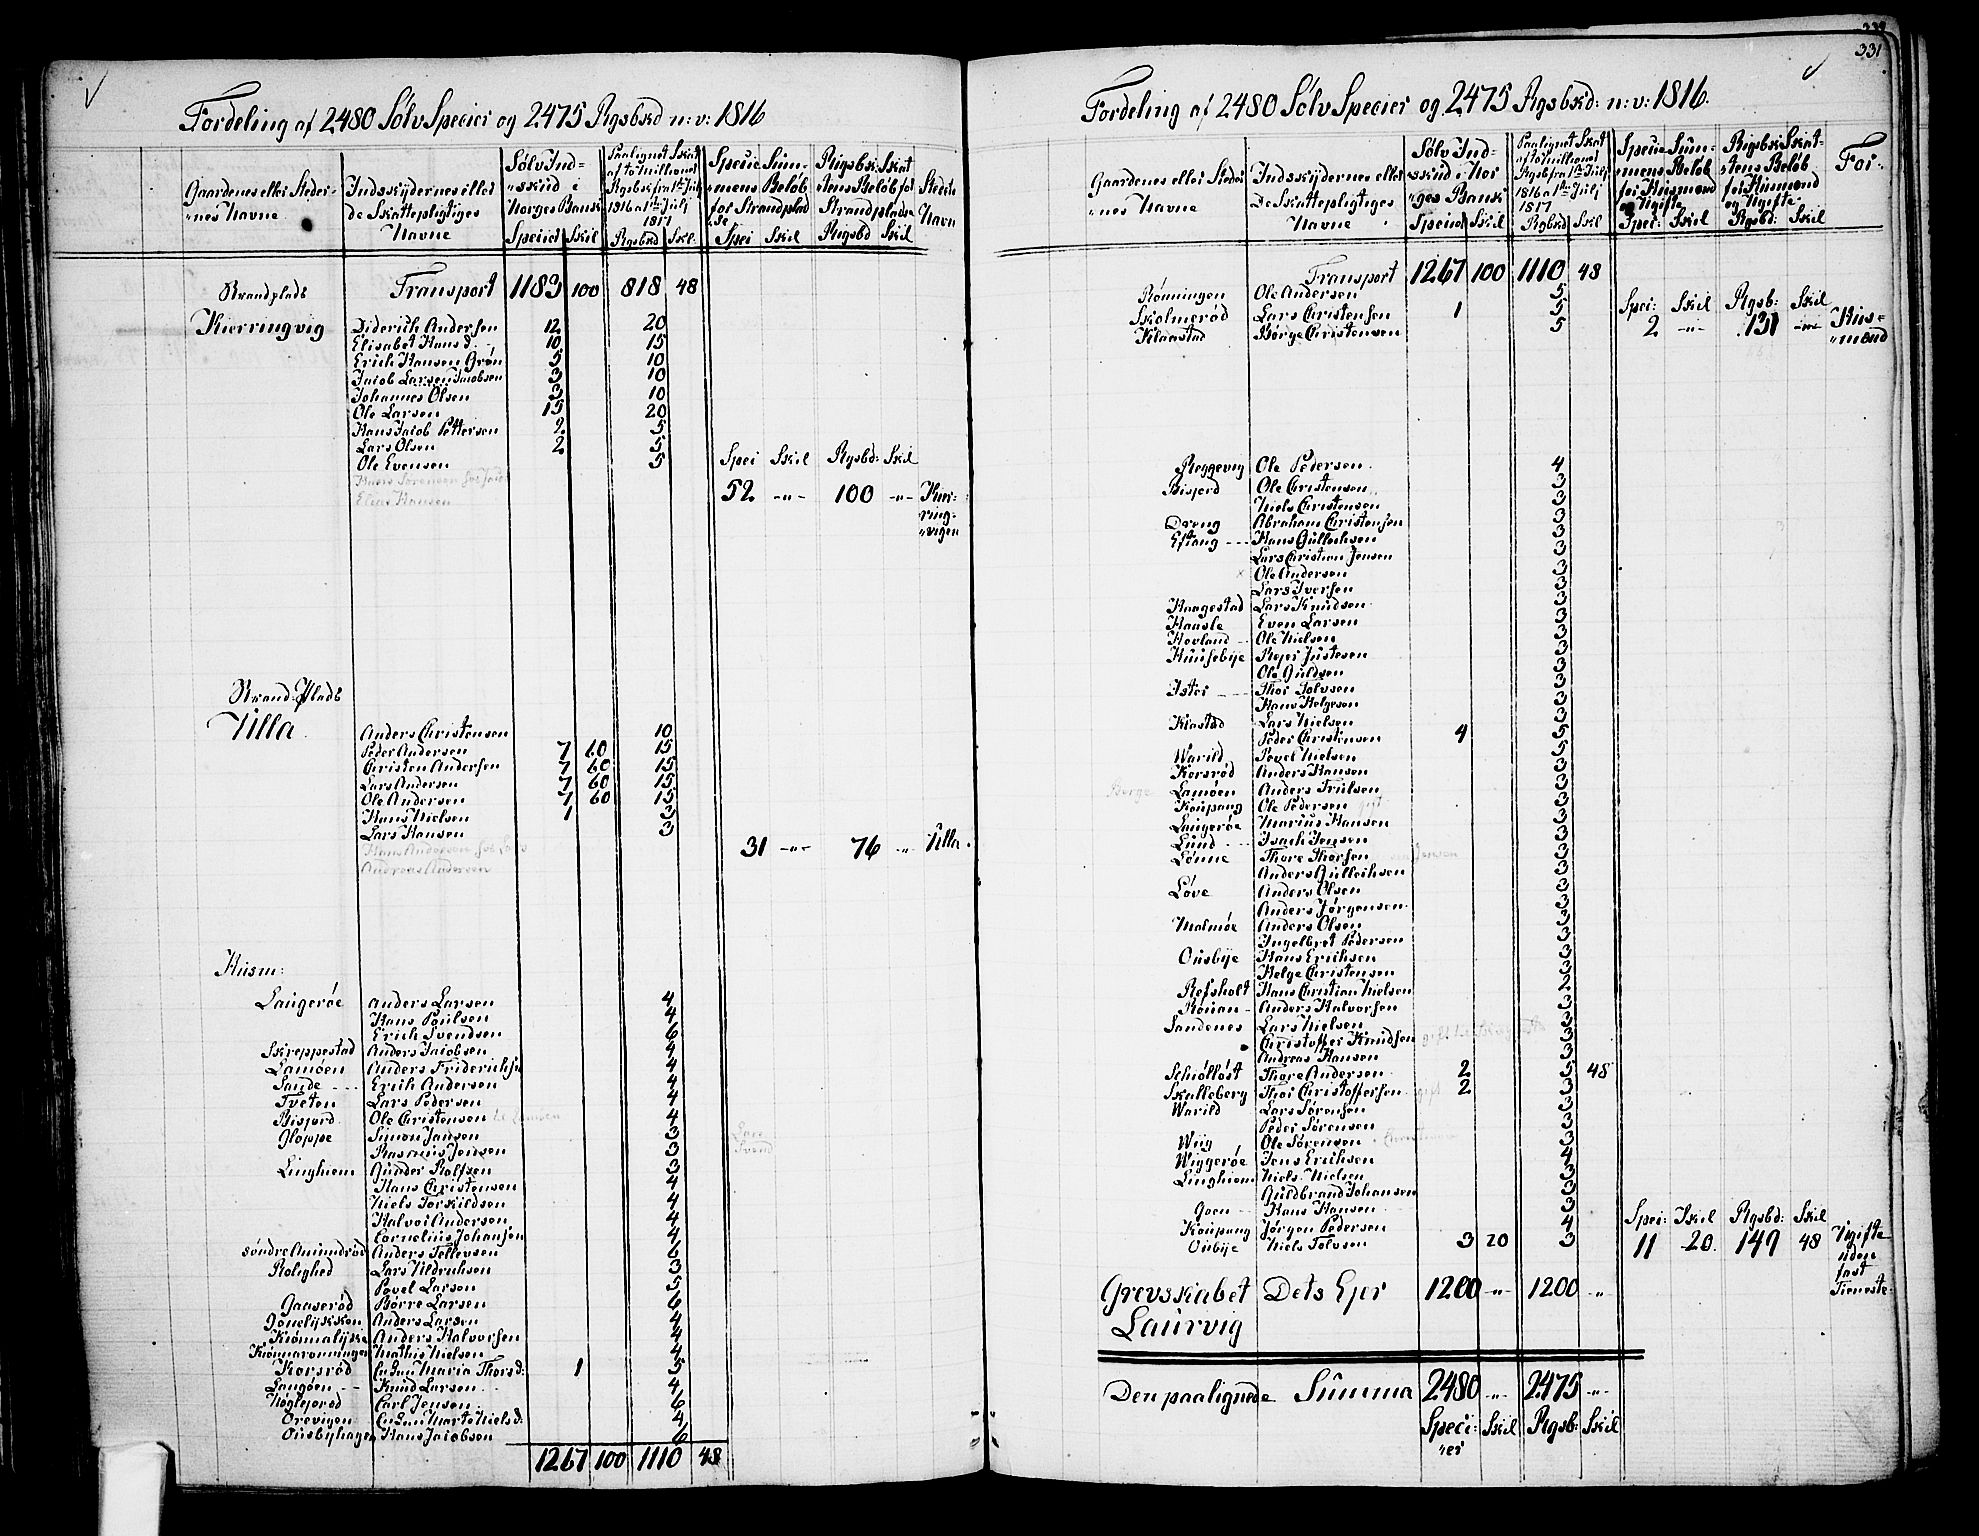 Fordeling af 2480 Sølv Specier og 2475 Rgsbkd n: v: 1816
Gaardenes eller Steder-
nes Navne
Indskydernes eller
de Skattepligtiges
Navne
Sølv Ind-
skud i
Norges Bank
Specier Skil
Paalignet Skat
af to Millioner
Rgsbk fra 1ste Julj
1816 a 1ste Julj
1817
Rgsbkd Skl:
Specie Sum-
mens Beløb
for Strandplad
se
Spei Skil
Rigsbk: Skat
tens Beløb for
Strandpladse
Rigsbd Skil
Stedets
Navn
Transport 1183 100 818 48
Strandplads
Kierringvig
Diderich Andersen 12 20
Elisabet Hansd. 10 15
Erich Hansen Grøn 5 10
Jacob Larsen Jacobsen 3 10
Johannes Olsen 3 10
Ole Larsen 15 20
Hans Jacob Pettersen 2 5
Lars Olsen 2 5
Ole Evensen 5
Spei Skil Rgsbd: Skil
Elias Hansen
52 -"- 100 -"- Kier-
ring-
vigen
Strand Plads
Ulla
Anders Christensen 10
Peder Andersen 7 60 15
Christen Andersen 7 60 15
Lars Andersen 7 60 15
Ole Andersen 7 60 15
Hans Nielsen 1 3
Lars Hansen 3
31 -"- 76 -"- Ulla.
Andreas Andersen
Husm:
Laugerøe Anders Larsen 4
Hans Poulsen 4
Erich Svendsen 6
Skreppestad Anders Jacobsen 4
Lamøen Anders Friderichsen 4
Sande Erich Andersen 4
Tveten Lars Pedersen 4
Bisjord Ole Christensen 4
Gloppe Simon Jansen 3
Rasmus Jensen 3
Linghiem Gunder Rolfsen 3
Hans Christensen 4
Niels Torkildsen 4
Halvor Andersen 4
Cornelius Johansen 4
søndre Amundrød Anders Tellevsen 6
Rolighed Lars Uldrichsen 3
Povel Larsen 5
Gauserød Børre Larsen 6
Anders Larsen 4
Anders Halvorsen 4
Mathis Nielsen 4
Korsrød Enken Maria Thorsd: 1 5
Langøen Knud Larsen 4
Carl Jensen 6
Orevigen Enken Marte Nielsd: 4
Ousbyhagen Hans Jacobsen 6
1267 100 1110 48
331
Fordeling af 2480 Sølv Specier og 2475 Rgsbkd: n: v: 1816.
Gaardenes eller Steder
nes Navne
Indskydernes eller
De Skattepligtiges
Navne
Sølv Ind-
skud i Nor
ges Bank
Specier Skil
Paalignet Skat
af to Millioner
Rgsbk fra 1ste Julj
1816 a 1ste Julj
1817
Rgbkd Skl
Specie Sum-
mens Beløb
for Husmænd
og Ugifte
Spei: Skil
Rigsbk: Skat-
tens Beløb
for Husmænd
og Ugifte
Rgsbd: Skil
For-
Transport 1267 100 1110 48
Rønningen Ole Andersen 5
Skolmerød Lars Christensen 1 5
Klaastad Børge Christensen 5
Spei: Skil Rgsb: Skil
2 -"- 131 -"- Hus-
mænd
Reggevig Ole Pedersen 4
Bisjord Ole Christensen 3
Niels Christensen 3
Dreng Abraham Christensen 3
Eftang Hans Gulleichsen 3
Lars Christian Jensen 3
Ole Andersen 3
Lars Iversen 3
Haagestad Lars Knudsen 3
Hausle Even Larsen 3
Hovland Ole Nielsen 3
Huusebye Reyer Justesen 3
Ole Guldsen 3
Ister Thor Tolvsen 3
Hans Helgesen 3
Kiestad Lars Nielsen 3
Peder Christensen 4 5
Warild Povel Nielsen 5
Korsrød Anders Hansen 3
Berge Lamøen Anders Trulsen 3
Koupang Ole Pedersen 3
Laugerøe Marius Hansen 3
Lund Isach Jensen 3
Lønne Thore Thorsen 3
Anders Gulleichsen 3
Løve Anders Olsen 3
Anders Jørgensen 3
Malmøe Anders Olsen 3
Ingelbret Pedersen 3
Ousbye Hans Erichsen 3
Helge Christensen 3
Refsholt Hans Christian Nielsen 2
Rouan Anders Halvorsen 3
Sandenes Lars Nielsen 3
Christopher Knudsen 3
Andreas Hansen 3
Schiølløst Thore Andersen 2 5 48
Skalleberg Thor Christoffersen gift 2 3
Warild Lars Sørensen 3
Peder Sørensen 3
Wiig Ole Sørensen 4
Wiggerøe Jens Erichsen 4
Linghiem Niels Nielsen 3
Guldbrand Johansen 3
Goen Hans Hansen 3
Koupang Jørgen Pedersen 4
Ousbye Niels Tolvsen 3 20 3
Spei: Skil Rgsbd: Skil
11 20. 149 48 Ugifte
uden
fast
Tieneste
Grevskabet Dets Ejer 1200 -"- 1200 -"-
Laurvig
Den paalignede Summa 2480 -"- 2475 -"-
Speci: Skil Rgsb: Skil
er